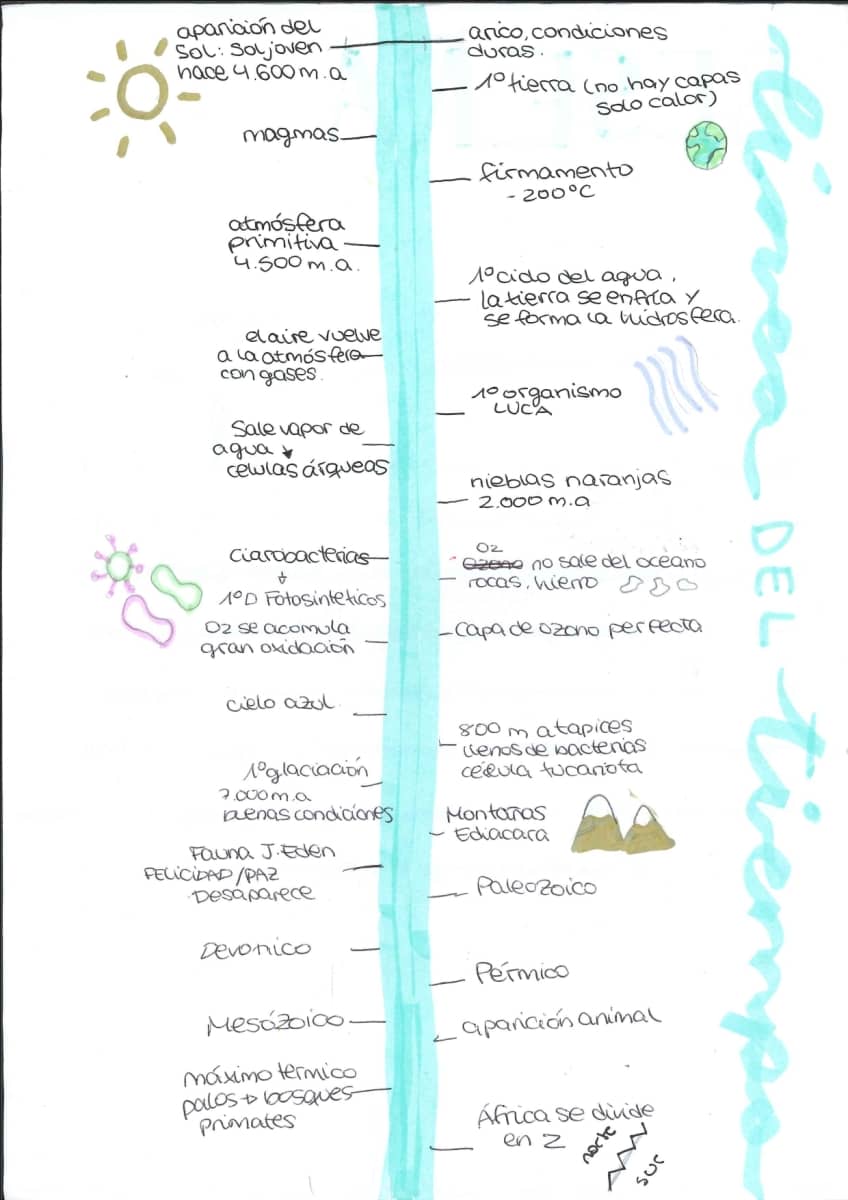 línea DEL tiempo
aparición del
Sol: Sol joven
hace 4.600 m.a
arico, condiciones
duras.
1º tierra (no hay capas
solo calor)
magmas
firmamento
- 200ºC
atmósfera
primitiva
4.500 m.a.
1º ciclo del agua,
la tierra se enfría y
se forma la hidrosfera.
el aire vuelve
a la atmósfera
con gases.
1º organismo
LUCA
Sale vapor de
agua ↓
células árqueas
nieblas naranjas
2.000 m.a
ciarobacterias
↓
1º D Fotosintéticos
O2
ozono no sale del océano
rocas, hierro
O2 se acomula
gran oxidación
capa de ozono perfecta
cielo azul
800 m a tapices
llenos de bacterias
célula tucariota
1º glaciación
7.000 m.a
buenas condiciones
Montañas
Ediacara
Fauna J. Eden
FELICIDAD/PAZ
Desaparece
Paleozoico
Devonico
Pérmico
Mesózoico
aparición animal
máximo termico
palos → bosques
primates
África se divide
en 2
norte
sur